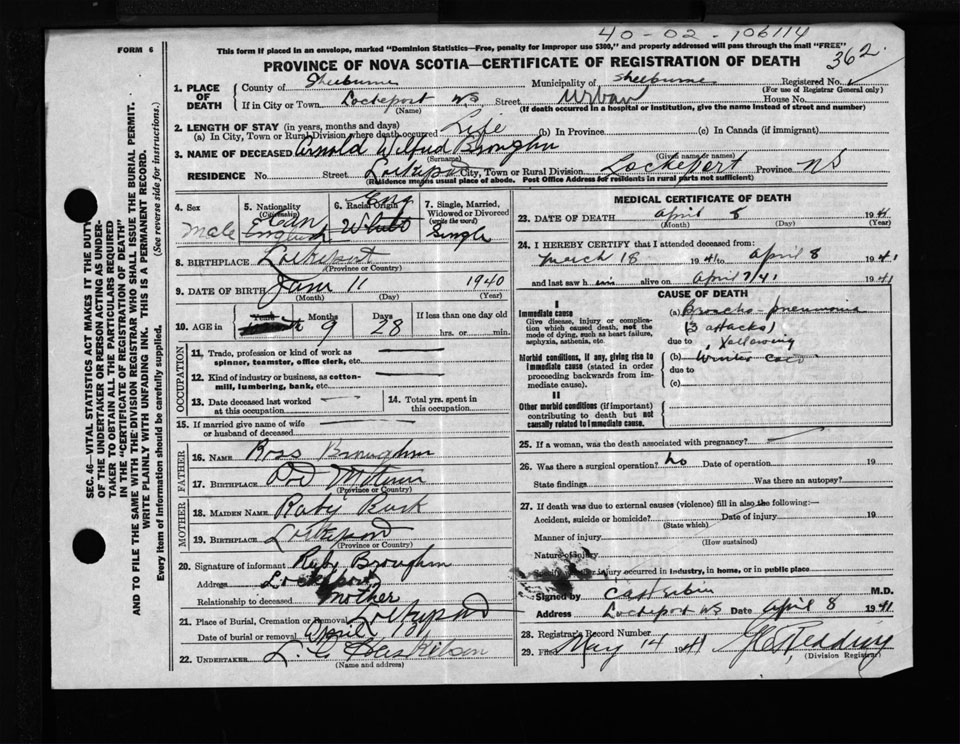 40-02-106114
FORM 6
This form if placed in an envelope, marked "Dominion Statistics—Free, penalty for improper use $300," and properly addressed will pass through the mail "FREE"
362
PROVINCE OF NOVA SCOTIA—CERTIFICATE OF REGISTRATION OF DEATH
1. PLACE OF DEATH
County of Shelburne Municipality of Shelburne Registered No.
(For use of Registrar General only)
If in City or Town Lockeport NS Street Urban House No.
(Name) (If death occurred in a hospital or institution, give the name instead of street and number)
2. LENGTH OF STAY (in years, months and days)
(a) In City, Town or Rural Division where death occurred Life (b) In Province (c) In Canada (if immigrant)
3. NAME OF DECEASED Arnold Wilfred
(Surname) (Given name or names)
RESIDENCE No. Street Lockeport City, Town or Rural Division Lockeport Province NS
(Residence means usual place of abode. Post Office Address for residents in rural parts not sufficient)
4. Sex Male
5. Nationality (Citizenship) Can English
6. Racial Origin Eng White
7. Single, Married, Widowed or Divorced (write the word) Single
8. BIRTHPLACE Lockeport
(Province or Country)
9. DATE OF BIRTH 11 1940
(Month) (Day) (Year)
10. AGE in Years Months 9 Days 28 If less than one day old
hrs. or min.
OCCUPATION
11. Trade, profession or kind of work as spinner, teamster, office clerk, etc.
12. Kind of industry or business, as cotton-mill, lumbering, bank, etc.
13. Date deceased last worked at this occupation
14. Total yrs. spent in this occupation
15. If married give name of wife or husband of deceased
FATHER
16. NAME Ross
17. BIRTHPLACE
(Province or Country)
MOTHER
18. MAIDEN NAME Ruby
19. BIRTHPLACE Lockeport
(Province or Country)
20. Signature of informant Ruby Brougham
Address Lockeport
Relationship to deceased Mother
21. Place of Burial, Cremation or Removal Lockeport
Date of burial or removal April 10
22. UNDERTAKER L.
(Name and address)
MEDICAL CERTIFICATE OF DEATH
23. DATE OF DEATH April 8 1941
(Month) (Day) (Year)
24. I HEREBY CERTIFY that I attended deceased from:
March 18 1941 to April 8 1941
and last saw h alive on April 7/41 1941
CAUSE OF DEATH
I
Immediate cause
Give disease, injury or complication which caused death, not the mode of dying, such as heart failure, asphyxia, asthenia, etc.
(a) Broncho-pneumonia
(3 attacks)
due to following
Morbid conditions, if any, giving rise to immediate cause (stated in order proceeding backwards from immediate cause).
(b) Winter
due to
(c)
II
Other morbid conditions (if important) contributing to death but not causally related to immediate cause.
25. If a woman, was the death associated with pregnancy?
26. Was there a surgical operation? No Date of operation 19
State findings Was there an autopsy?
27. If death was due to external causes (violence) fill in also the following:—
Accident, suicide or homicide? Date of injury 19
(State which)
Manner of injury
(How sustained)
Nature of injury
injury occurred in industry, in home, or in public place
Signed by M.D.
Address Lockeport NS Date April 8 1941
28. Registrar's Record Number
29. Filed May 14 1941
(Division Registrar)
SEC. 46—VITAL STATISTICS ACT MAKES IT THE DUTY
OF THE UNDERTAKER OR PERSON ACTING AS UNDER-
TAKER TO OBTAIN ALL THE PARTICULARS REQUIRED
IN THE "CERTIFICATE OF REGISTRATION OF DEATH"
AND TO FILE THE SAME WITH THE DIVISION REGISTRAR WHO SHALL ISSUE THE BURIAL PERMIT.
WRITE PLAINLY WITH UNFADING INK. THIS IS A PERMANENT RECORD.
Every item of Information should be carefully supplied. (See reverse side for instructions.)